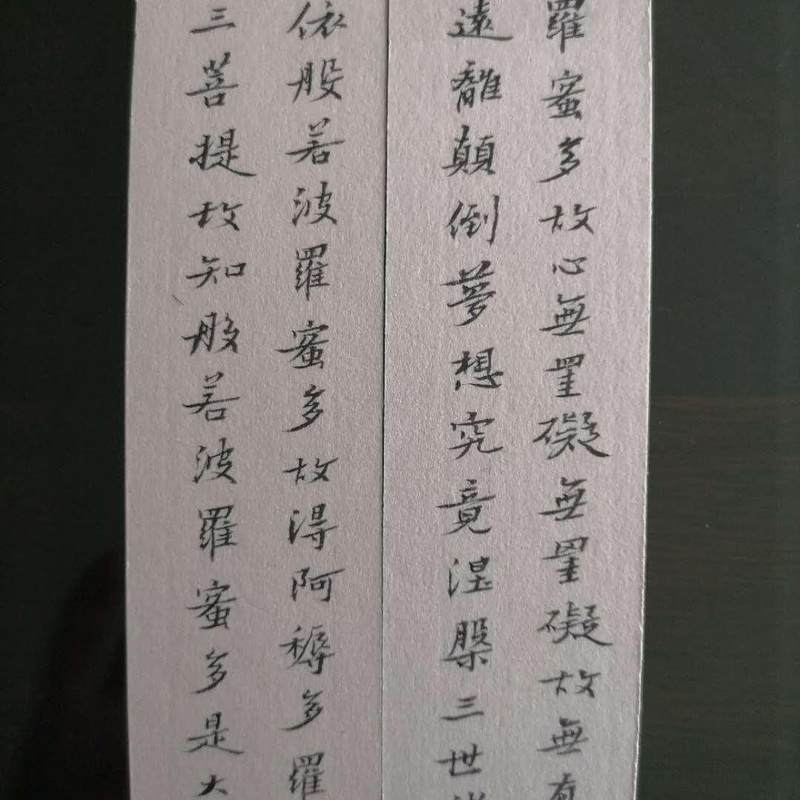 羅蜜多故心無罣礙無罣礙故無有
遠離顛倒夢想究竟涅槃三世
依般若波羅蜜多故得阿耨多羅
三菩提故知般若波羅蜜多是大